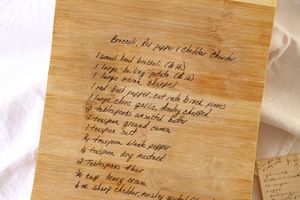 Broccoli, Red pepper & Cheddar Chowder
1 small head broccoli (½ lb)
1 large boiling potato (½ lb)
1 large onion, chopped
1 red bell pepper, cut into ½ inch pieces
1 large clove garlic, finely chopped
2 tablespoons unsalted butter
1 teaspoon ground cumin
1 teaspoon salt
½ teaspoon black pepper
½ teaspoon dry mustard
2 tablespoons flour
¾ cup heavy cream
6 oz sharp cheddar, coarsely grated